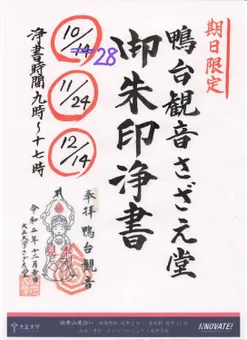 期日限定
鴨台観音さざえ堂
御朱印浄書
10/14 28
11/24
12/14
浄書時間九時〜十七時
奉拝 鴨台観音
令和二年十二月吉日
大正大学さざえ堂
大正大学
INNOVATE!